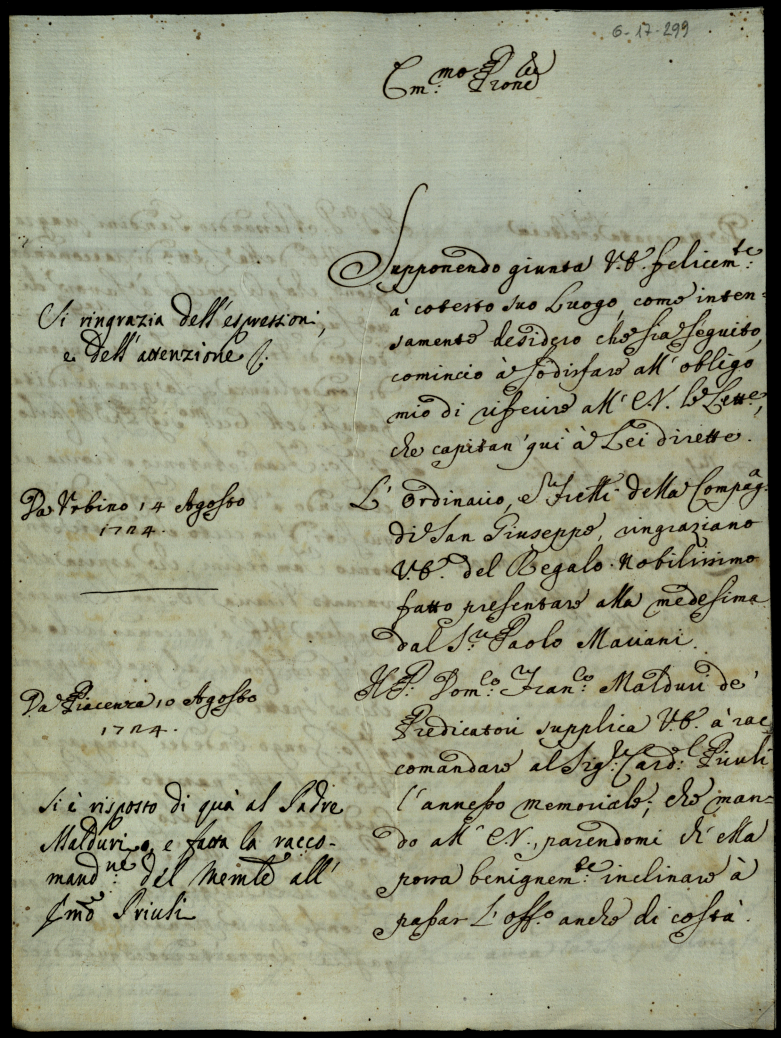 6-17-299
Em.mo P.rone
Supponendo giunta V.E. felicem.te
à cotesto suo Luogo, come inten-
samente desidero che sia seguito,
comincio à sodisfare all' obligo
mio di riferire all' E.V. le Lett.e,
che capitan' quì à Lei dirette.
Si ringrazia dell' espressioni,
e dell' attenzione
Da Urbino 14 Agosto
1724.
L' Ordinario, e Frelli della Compag.a
di San Giuseppe, ringraziano
V.E. del Regalo Nobilissimo
fatto presentare alla medesima
dal S.r Paolo Mariani.
Da Piacenza 10 Agosto
1724.
Il P. Dom.co Fran.co Malduri de'
Predicatori supplica V.E. à rac
comandare al Sig.r Card.l Priuli
l' annesso memoriale, che man-
do all' E.V., parendomi ch' Ella
possa benignem.te inclinare à
passar l' off.o anche di costà.
Si è risposto di quà al Padre
Malduri, e fatta la racco-
mand.ne del Memle all'
Emo Priuli